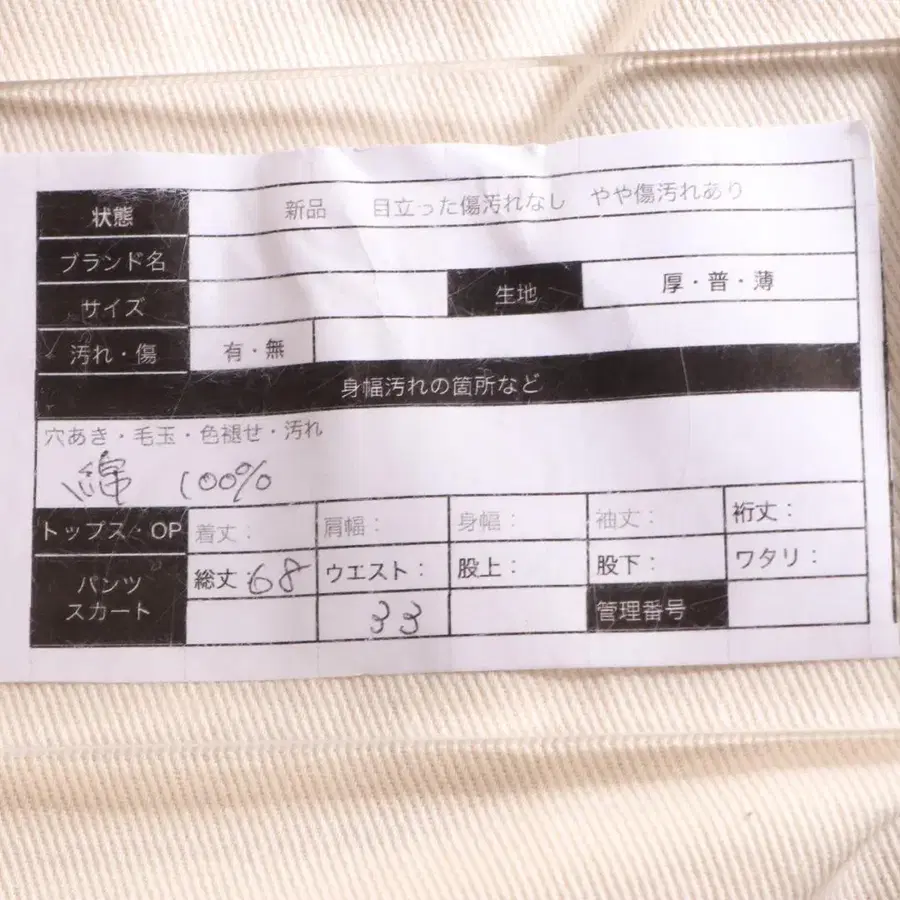 状態 新品 目立った傷汚れなし やや傷汚れあり
ブランド名
サイズ 生地 厚・普・薄
汚れ・傷 有・無
身幅汚れの箇所など
穴あき・毛玉・色褪せ・汚れ
綿 100%
トップス・OP 着丈: 肩幅: 身幅: 袖丈: 裄丈:
パンツ スカート 総丈:68 ウエスト: 股上: 股下: ワタリ:
33 管理番号